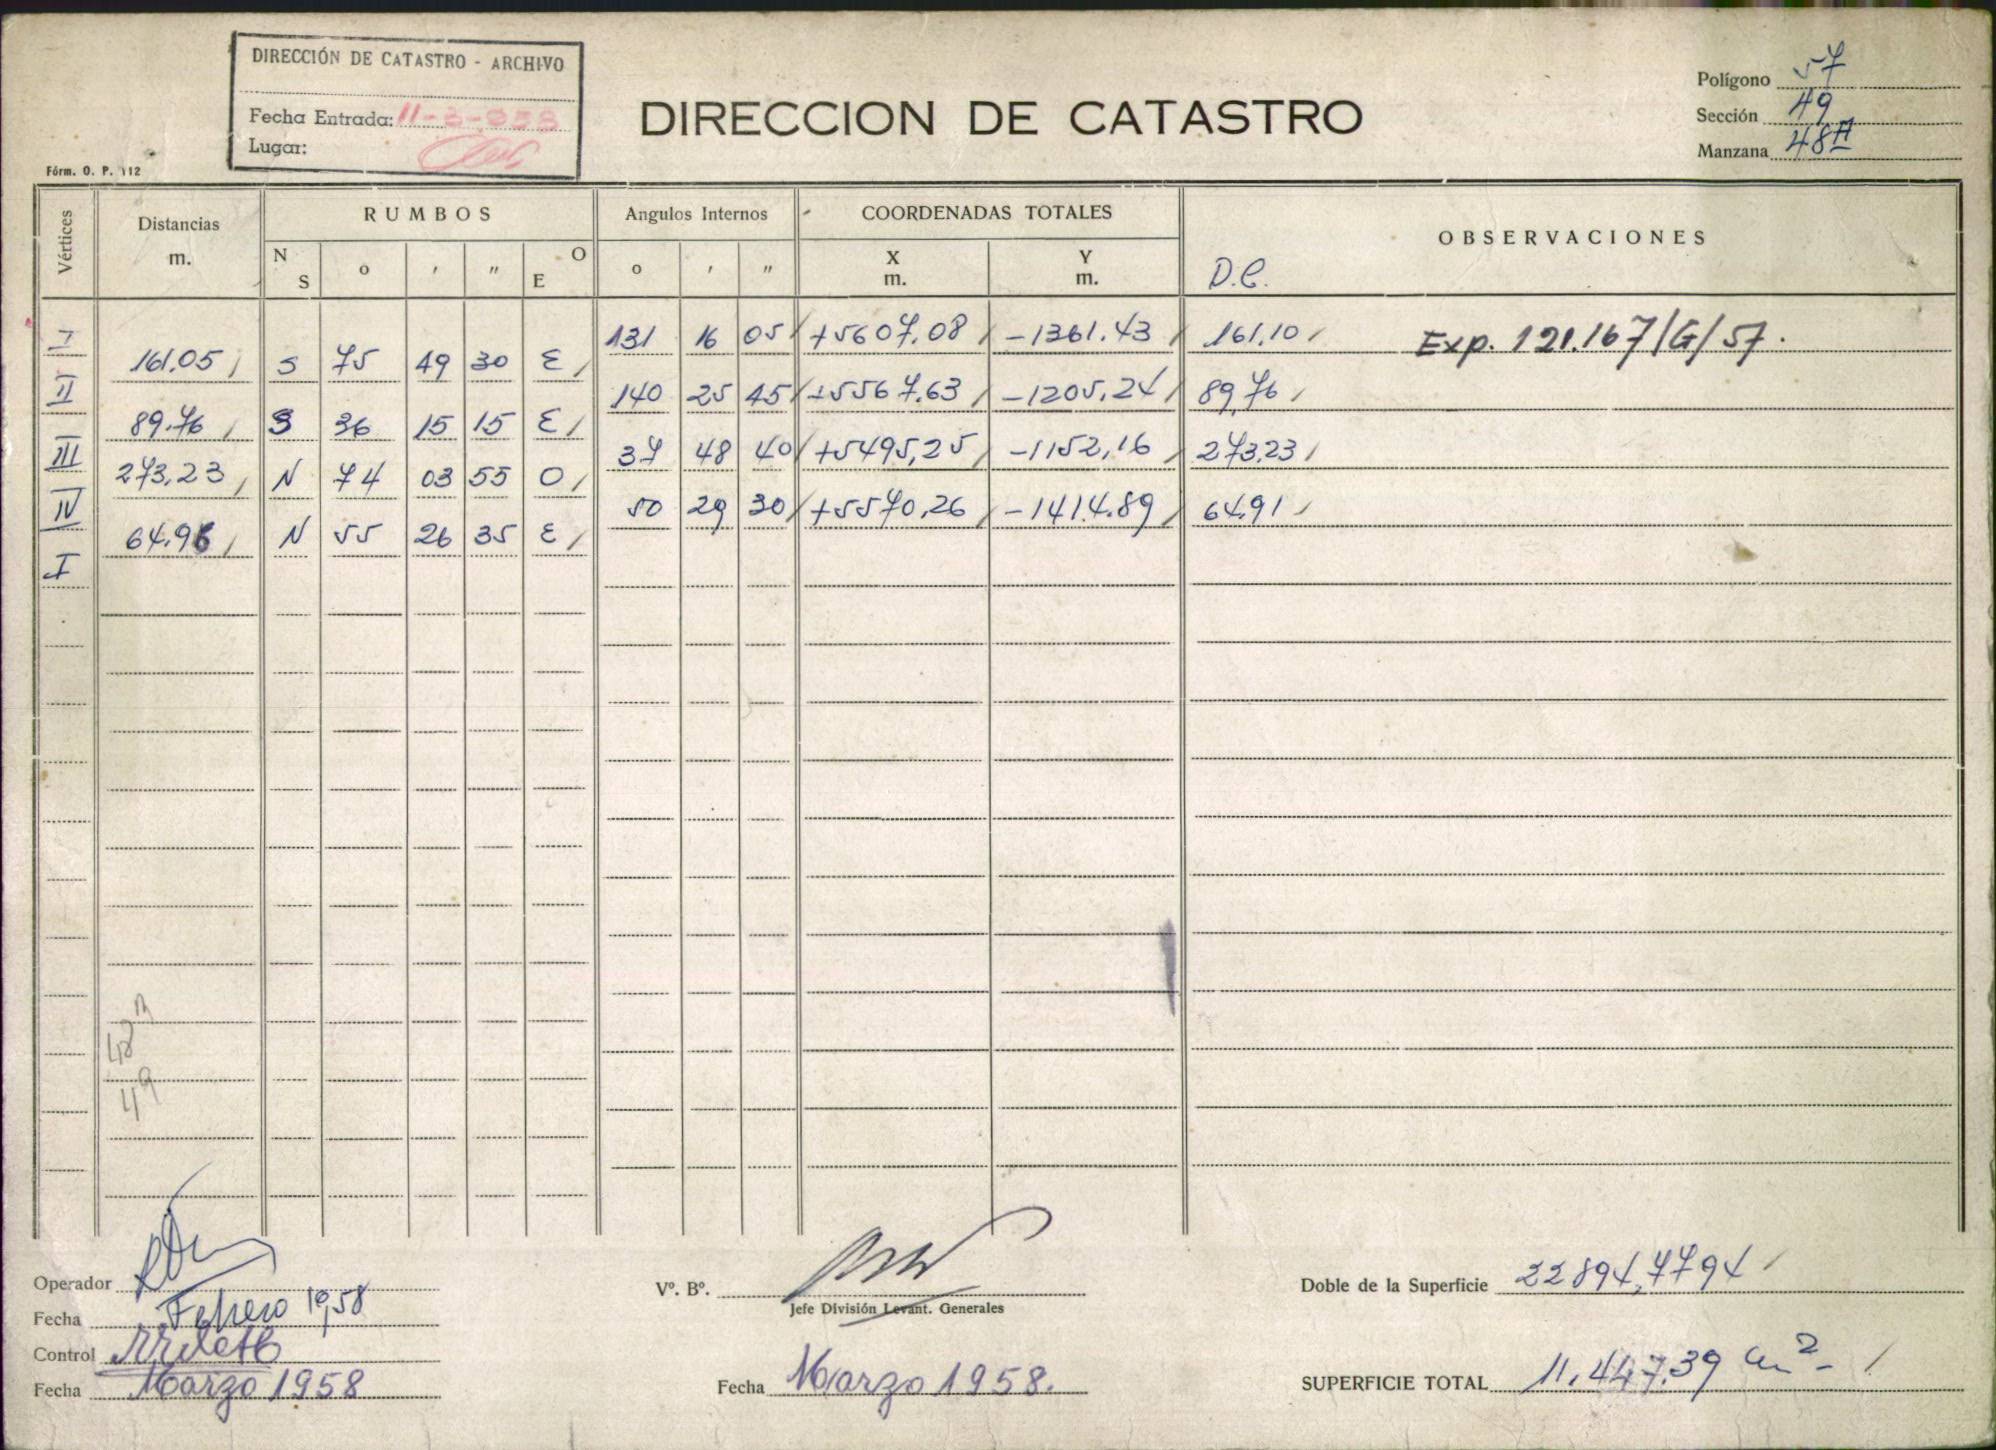 DIRECCIÓN DE CATASTRO - ARCHIVO
Fecha Entrada: 11-3-958
Lugar:
DIRECCION DE CATASTRO
Polígono 57
Sección 49
Manzana 48A
Fórm. O. P. 112
Vértices Distancias m. RUMBOS Angulos Internos COORDENADAS TOTALES OBSERVACIONES
N S o ′ ″ E O o ′ ″ X m. Y m. D.C.
I 131 16 05 +5607.08 -1361.43 161.10 Exp. 121.167/G/57.
161.05 S 75 49 30 E
II 140 25 45 +5567.63 -1205.24 89.76
89.76 S 36 15 15 E
III 37 48 40 +5495,25 -1152,16 273,23
273,23 N 74 03 55 O
IV 50 29 30 +5570,26 -1414.89 64.91
64.96 N 55 26 35 E
I
48
49
Operador
Fecha Febrero 1958
Control
Fecha Marzo 1958
Vº. Bº.
Jefe División Levant. Generales
Fecha Marzo 1958.
Doble de la Superficie 22894,7794
SUPERFICIE TOTAL 11.447.39 m2-